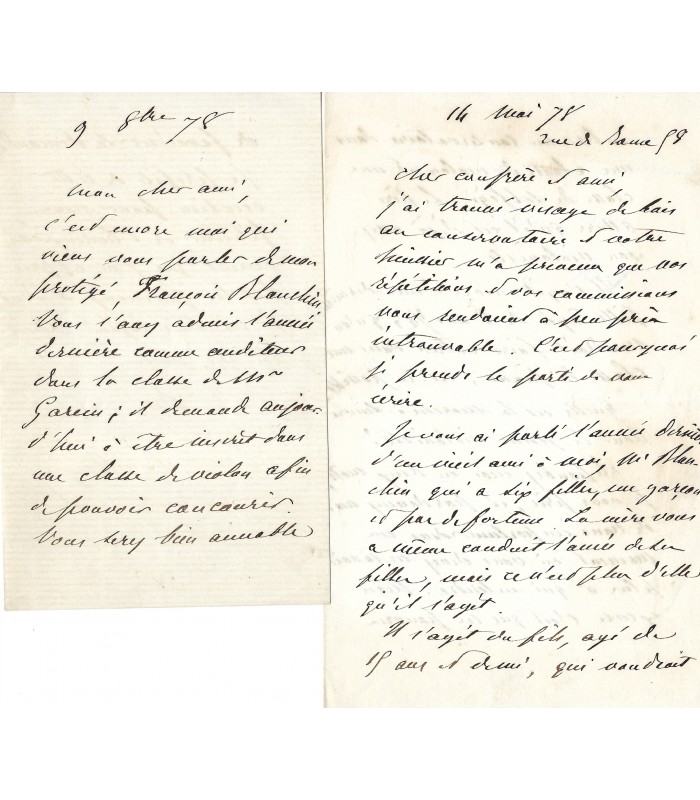 9 8bre 78
mon cher ami,
c'est encore moi qui
viens vous parler de mon
protégé, François Blanchin
Vous l'avez admis l'année
dernière comme auditeur
dans la classe de Mr
Garcin; il demande aujour-
d'hui à être inscrit dans
une classe de violon afin
de pouvoir concourir.
Vous serez bien aimable
14 Mai 78
rue de Rome 58
cher confrère & ami,
j'ai trouvé visage de bois
au conservatoire & votre
huissier m'a prévenu que vos
répétitions & vos commissions
vous rendaient à peu près
introuvable. C'est pourquoi
je prends le parti de vous
écrire.
Je vous ai parlé l'année dernière
d'un vieil ami à moi, Mr Blan-
chin qui a six filles, un garçon
et pas de fortune. La mère vous
a même conduit l'aînée de ses
filles, mais ce n'est plus d'elle
qu'il s'agit.
Il s'agit du fils, agé de
15 ans & demi, qui voudrait